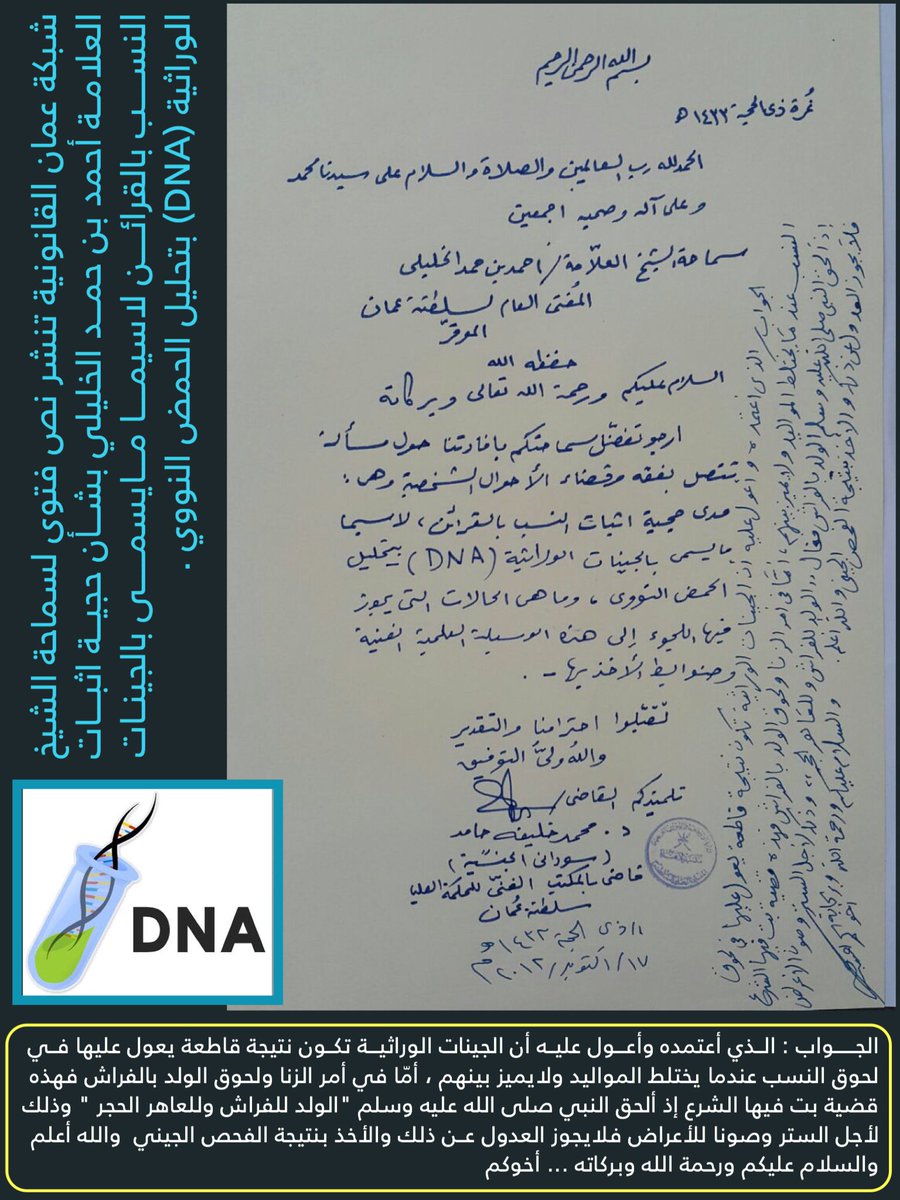 شبكة عمان القانونية تنشر نص فتوى لسماحة الشيخ
العلامة أحمد بن حمد الخليلي بشأن حجية اثبات
النسب بالقرائن لاسيما مايسمى بالجينات
الوراثية (DNA) بتحليل الحمض النووي .
بسم الله الرحمن الرحيم
غرة ذي الحجة ١٤٣٣ ه
الحمد لله رب العالمين والصلاة والسلام على سيدنا محمد
وعلى آله وصحبه اجمعين
سماحة الشيخ العلّامة / احمد بن حمد الخليلي
المفتى العام لسلطنة عمان
الموقرّ
حفظه الله
السلام عليكم ورحمة الله تعالى وبركاته
ارجو تفضّل سماحتكم بافادتنا حول مسألة
تتصل بفقه وقضاء الأحوال الشخصية وهى :
مدى حجية اثبات النسب بالقرائن ، لاسيما
مايسمى بالجينات الوراثية (DNA) بتحليل
الحمض النووى ، وما هى الحالات التى يجوز
فيها اللجوء إلى هذه الوسيلة العلمية الفنية
وضوابط الأخذ بها - .
تقبّلوا احترامنا والتقدير
والله وليُّ التوفيق
تلميذكم القاضى /
د . محمد خليفه حامد
(سودانى الجنسّية)
قاضى بالمكتب الفنّي للمحكمة العليا
سلطنة عُمان
ذى الحجة ١٤٣٣ ه
١٧/ اكتوبر / ٢٠١٢ م
الجواب الذي أعتمده وأعول عليه أن الجينات الوراثية تكون نتيجة قاطعة يعول عليها في لحوق
النسب عندما يختلط المواليد ولا يميز بينهم ، أمّا في أمر الزنا ولحوق الولد بالفراش فهذه قضية بت فيها الشرع
إذ ألحق النبي صلى الله عليه وسلم الولد بالفراش فقال "الولد للفراش وللعاهر الحجر" وذلك لأجل الستر وصونا للأعراض
فلا يجوز العدول عن ذلك والأخذ بنتيجة الفحص الجيني والله أعلم والسلام عليكم ورحمة الله وبركاته أخوكم
DNA
الجـواب : الذي أعتمده وأعـول عليه أن الجينات الوراثية تكون نتيجة قاطعة يعول عليها في
لحوق النسب عندما يختلط المواليد ولايميز بينهم ، أمّا في أمر الزنا ولحوق الولد بالفراش فهذه
قضية بت فيها الشرع إذ ألحق النبي صلى الله عليه وسلم "الولد للفراش وللعاهر الحجر " وذلك
لأجل الستر وصونا للأعراض فلايجوز العدول عن ذلك والأخذ بنتيجة الفحص الجيني والله أعلم
والسلام عليكم ورحمة الله وبركاته ... أخوكم